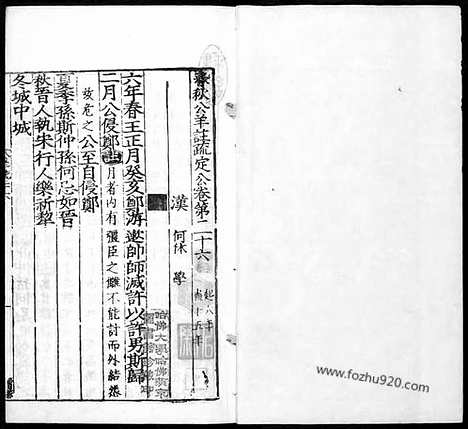 春秋公羊註疏定公卷第二十六 起六年
盡十五年
漢 何休 學
六年春王正月癸亥鄭游遬帥師滅許以許男斯歸
二月公侵鄭 月者內有彊臣之讎不能討而外結怨
故危之 公至自侵鄭
夏季孫斯仲孫何忌如晉
秋晉人執宋行人樂祁犂
冬城中城
哈佛大學哈佛燕京
圖書館珍藏印
www.fozhu920.com